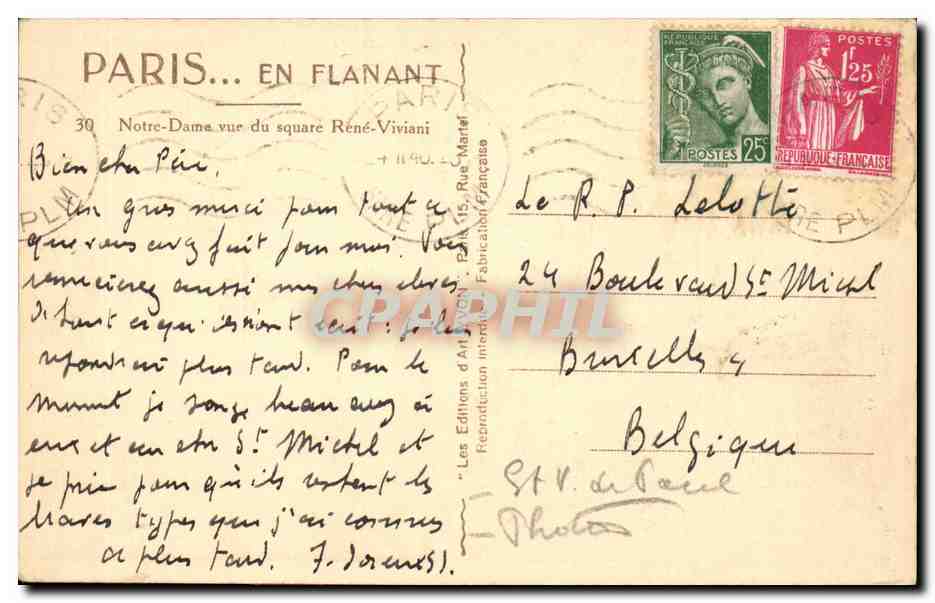 PARIS... EN FLANANT
30 Notre-Dame vue du square René-Viviani
Bien cher Père,
Un gros merci pour tout ce
que vous avez fait pour moi. Vous
remercierez aussi mes chers élèves
de tout ce qu' : je leur
répondrai plus tard. Pour le
moment je songe beaucoup à
eux et au cher St Michel et
je prie pour qu'ils restent les
braves types que j'ai connus
A plus tard. F. S.J.
"Les Editions d'Art YVON", Paris, 15, Rue Martel
Reproduction interdite Fabrication Française
REPUBLIQUE FRANÇAISE
POSTES 25c
POSTES
1f 25
REPUBLIQUE FRANÇAISE
PARIS
GARE PLM
Le R. P. Lelotte
24 Boulevard St Michel
Bruxelles 4
Belgique
St V. de Paul
Photos
CPAPHIL